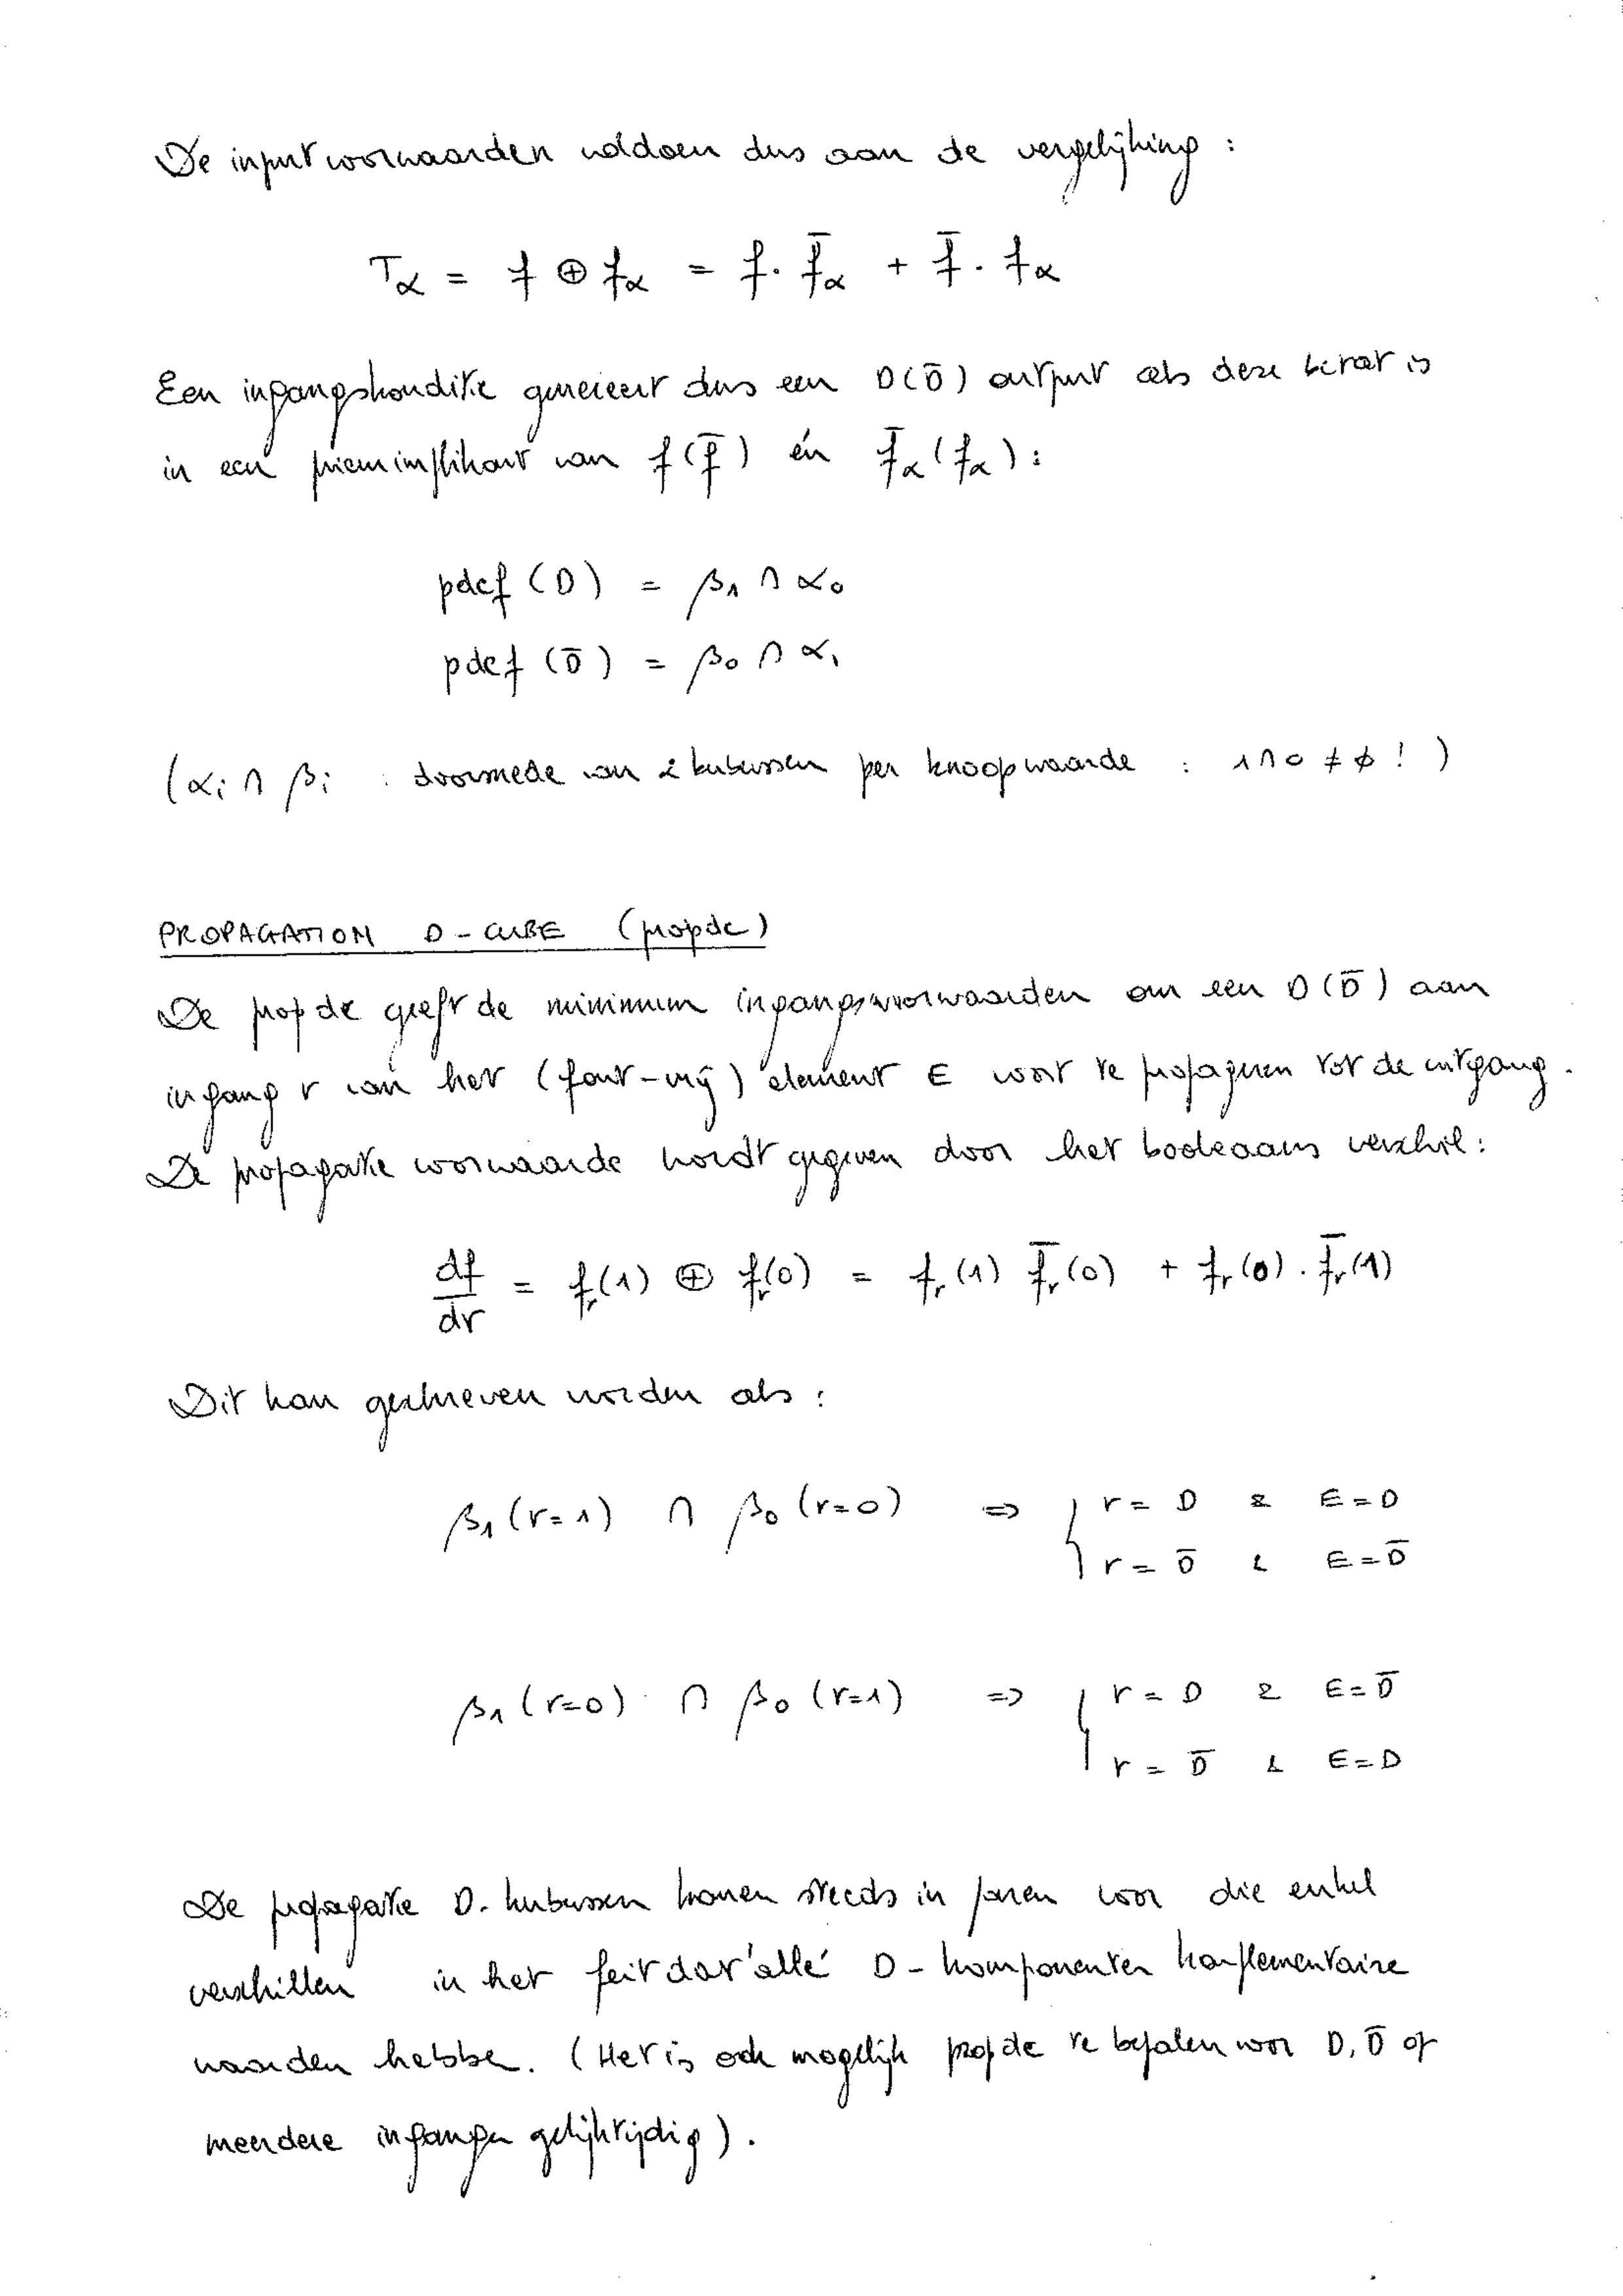 De inputvoorwaarden voldoen dus aan de vergelijking :
Tα = f ⊕ fα = f . f̄α + f̄ . fα
Een ingangskonditie genereert dus een D(D̄) output als deze bevat is
in een priemimplikant van f(f̄) én f̄α(fα) :
pdcf (D) = β₁ ∩ α₀
pdcf (D̄) = β₀ ∩ α₁
(αᵢ ∩ βᵢ : doorsnede van 2 kubussen per knoopwaarde : 1∩0 ≠ ϕ ! )
PROPAGATION D-CUBE (propdc)
De propdc geeft de minimum ingangsvoorwaarden om een D(D̄) aan
ingang r van het (fout-vrij) element E voort te propageren tot de uitgang.
De propagatie voorwaarde wordt gegeven door het booleaans verschil :
df/dr = fᵣ(1) ⊕ fᵣ(0) = fᵣ(1) f̄ᵣ(0) + fᵣ(0) . f̄ᵣ(1)
Dit kan geschreven worden als :
β₁(r=1) ∩ β₀(r=0) ⇒ { r = D & E = D
r = D̄ & E = D̄
β₁(r=0) ∩ β₀(r=1) ⇒ { r = D & E = D̄
r = D̄ & E = D
De propagatie D-kubussen komen steeds in paren voor die enkel
verschillen in het feit dat 'alle' D-komponenten komplementaire
waarden hebbe. (Het is ook mogelijk propdc te bepalen voor D, D̄ of
meerdere ingangen gelijktijdig).